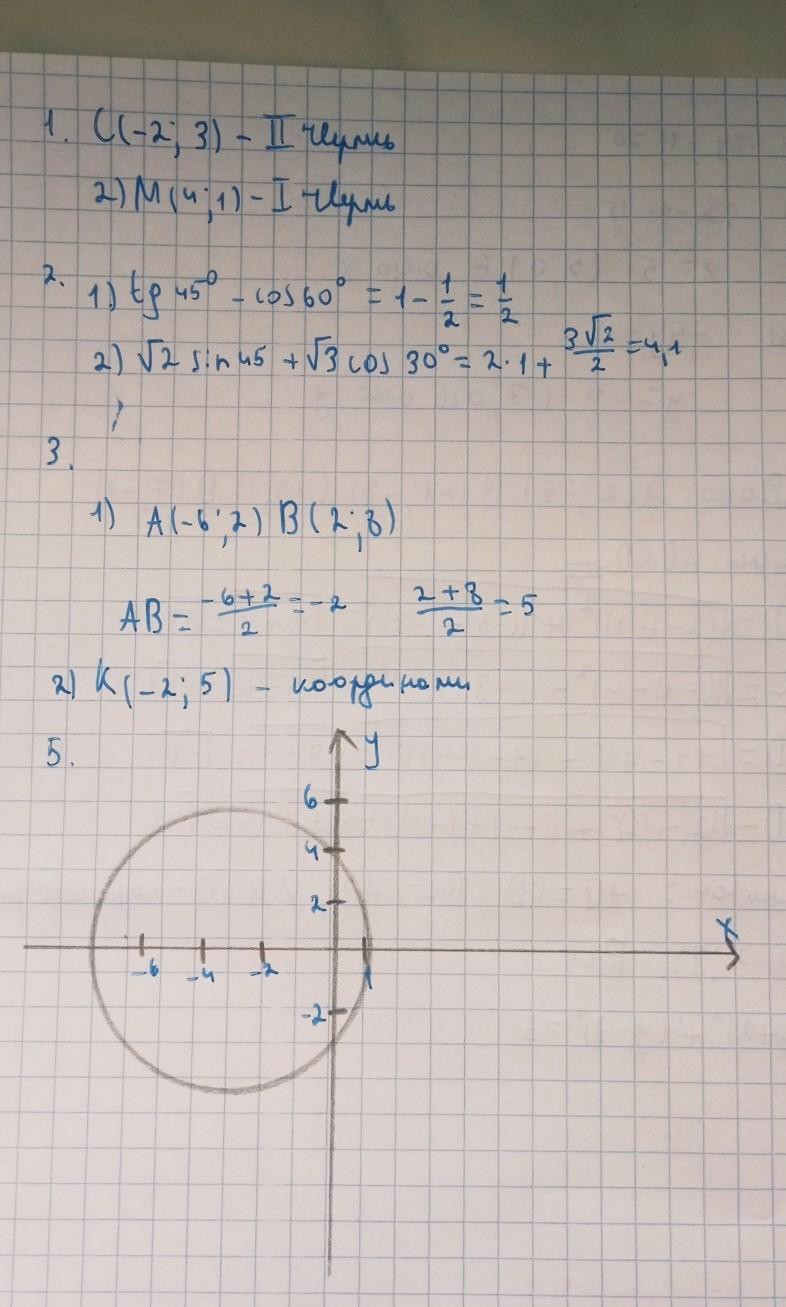 1. C(-2; 3) - II четв
2) M(4; 1) - I четв
2. 1) tg 45° - cos 60° = 1 - 1/2 = 1/2
2) √2 sin 45 + √3 cos 30° = 2 · 1 + 3√2/2 = 4,1
3.
1) A(-6; 2) B(2; 8)
AB = -6+2/2 = -2 2+8/2 = 5
2) K(-2; 5) - координати
5.
y
6
4
2
x
-6 -4 -2 1
-2